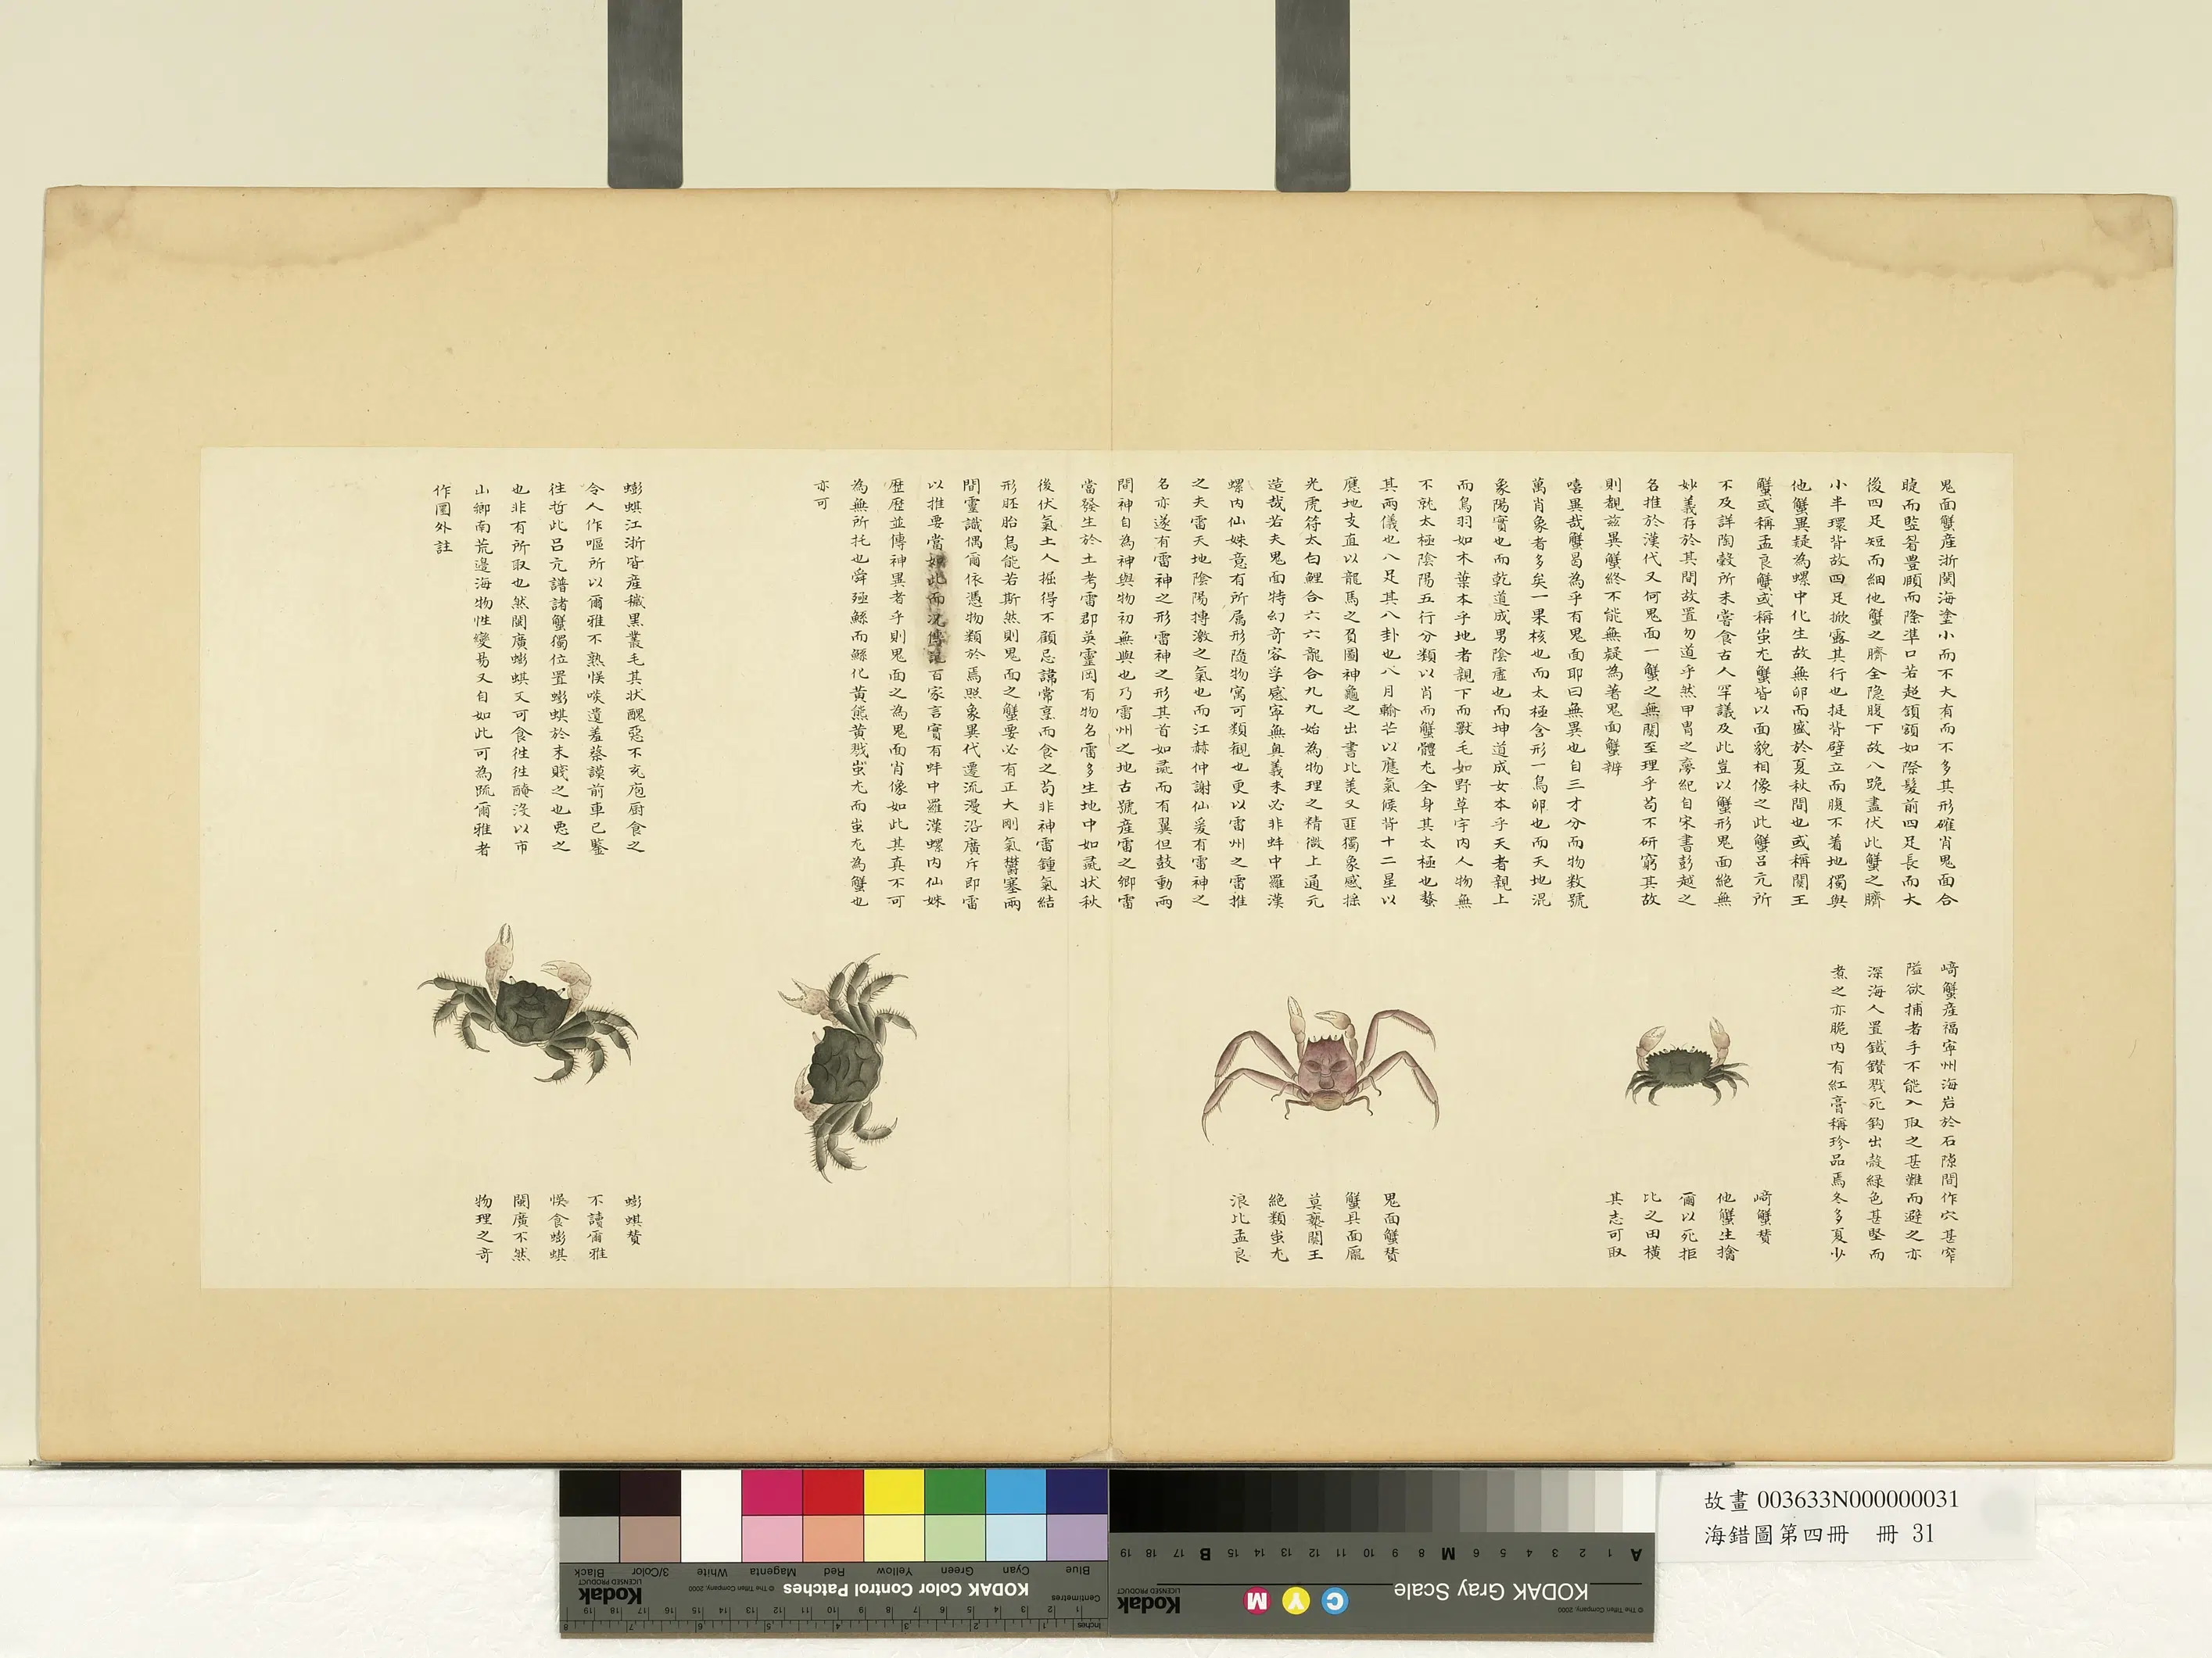 鬼面蟹產浙閩海塗小而不大有而不多其形確肖鬼面合
睫而豎眥豐頤而隆準口若超頷額如際髮前四足長而大
後四足短而細他蟹之臍全隐腹下故八跪盡伏此蟹之臍
小半環背故四足掀露其行也挺背壁立而腹不着地獨與
他蟹異疑為螺中化生故無卵而盛於夏秋間也或稱関王
蟹或稱孟良蟹或稱蚩尤蟹皆以面貌相像之此蟹呂亢所
不及詳陶穀所未嘗食古人罕議及此豈以蟹形鬼面絕無
妙義存於其間故置勿道乎然甲冑之夢紀自宋書彭越之
名推於漢代又何鬼面一蟹之無關至理乎苟不研窮其故
則覩茲異蟹終不能無疑為著鬼面蟹辨
嘻異哉蟹曷為乎有鬼面耶曰無異也自三才分而物数號
萬肖象者多矣一果核也而太極含形一鳥卵也而天地混
象陽實也而乾道成男陰虛也而坤道成女本乎天者親上
而鳥羽如木葉本乎地者親下而獸毛如野草宇内人物無
不就太極陰陽五行分類以肖而蟹體尤全身其太極也螯
其兩儀也八足其八卦也八月輸芒以應氣候背十二星以
應地支直以龍馬之負圖神龜之出書比美又匪獨象感搖
光虎符太白鯉合六六龍合九九始為物理之精微上通元
造哉若夫鬼面特幻奇容孚感寧無奥義未必非蚌中羅漢
螺内仙姝意有所属形隨物寓可類觀也更以雷州之雷推
之夫雷天地陰陽搏激之氣也而江赫仲謝仙爰有雷神之
名亦遂有雷神之形雷神之形其首如彘而有翼但鼓動兩
間神自為神與物初無與也乃雷州之地古號產雷之鄉雷
當發生於土考雷郡英靈岡有物名雷多生地中如彘状秋
後伏氣土人掘得不顧忌諱常烹而食之苟非神雷鍾氣結
形胚胎烏能若斯然則鬼面之蟹要必有正大剛氣欝塞兩
間靈識偶爾依憑物類於焉照象異代遷流漫沿廣斥即雷
以推要當如此而況傳記百家言實有蚌中羅漢螺内仙姝
歷歷並傳神異者乎則鬼面之為鬼面肖像如此其真不可
為無所托也舜殛鯀而鯀化黄熊黄戮蚩尤而蚩尤為蟹也
亦可
蟛蜞江浙皆産穢黑叢毛其状醜惡不充庖厨食之
令人作嘔所以爾雅不熟悞啖遺羞蔡謨前車已鑒
徃哲此呂亢譜諸蟹獨位置蟛蜞於末賤之也惡之
也非有所取也然閩廣蟛蜞又可食徃徃醃浸以市
山鄉南荒邊海物性變易又自如此可為疏爾雅者
作圖外註
崎蟹產福寧州海岩於石隙間作穴甚窄
隘欲捕者手不能入取之甚難而避之亦
深海人置鐵鑽戮死鈎出殼緑色甚堅而
煮之亦脆内有紅膏稱珍品焉冬多夏少
崎蟹賛
他蟹生擒
爾以死拒
比之田橫
其志可取
鬼面蟹賛
蟹具面龎
莫褻関王
絕類蚩尤
浪比孟良
蟛蜞賛
不讀爾雅
悞食蟛蜞
閩廣不然
物理之奇
故畫 003633N000000031
海錯圖第四冊 冊 31
Blue Cyan Green Yellow Red Magenta White 3/Color Black
KODAK Color Control Patches
© The Tiffen Company, 2000
Kodak
LICENSED PRODUCT
Centimetres
1 2 3 4 5 6 7 8 9 10 11 12 13 14 15 16 17 18 19
Inches
1 2 3 4 5 6 7 8
A 1 2 3 4 5 6 M 8 9 10 11 12 13 14 15 B 17 18 19
KODAK Gray Scale
C Y M
Kodak
LICENSED PRODUCT
© The Tiffen Company, 2000